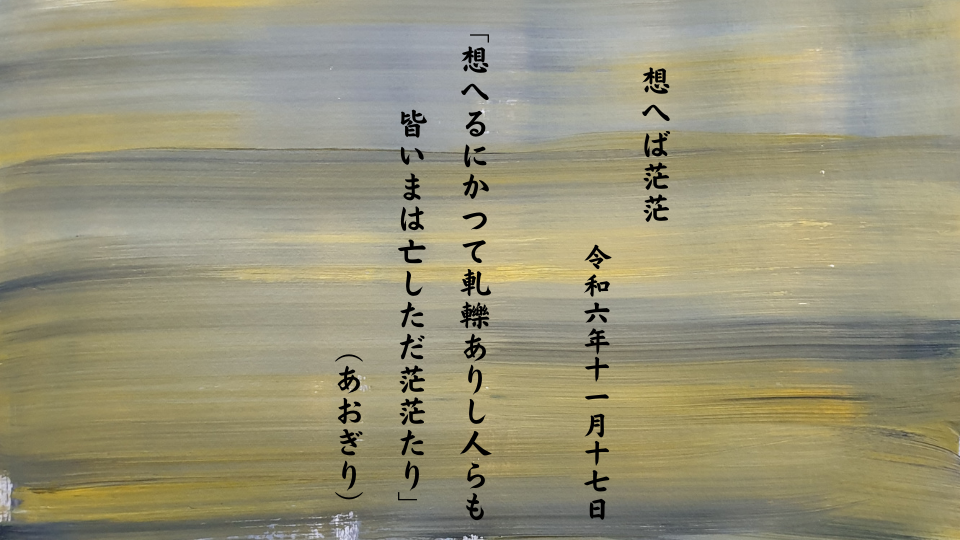 想へば茫茫
令和六年十一月十七日
「想へるにかつて軋轢ありし人らも
皆いまは亡しただ茫茫たり」
（あおぎり）